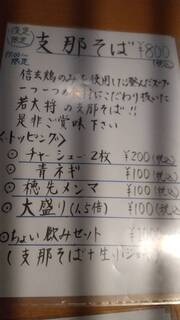 夜定
限定
17:00〜
限定
支那そば ¥800
(税込)
信玄鶏のみを使用した澄んだスープ
一つ一つの こだわり抜いた
若大将の支那そば!!
是非ご賞味下さい
<トッピング>
◎ チャーシュー2枚 ¥200(税込)
◎ 青ネギ ¥100(税込)
◎ 穂先メンマ ¥100(税込)
◎ 大盛り(1.5倍) ¥100(税込)
◎ ちょい飲みセット
(支那そば+生